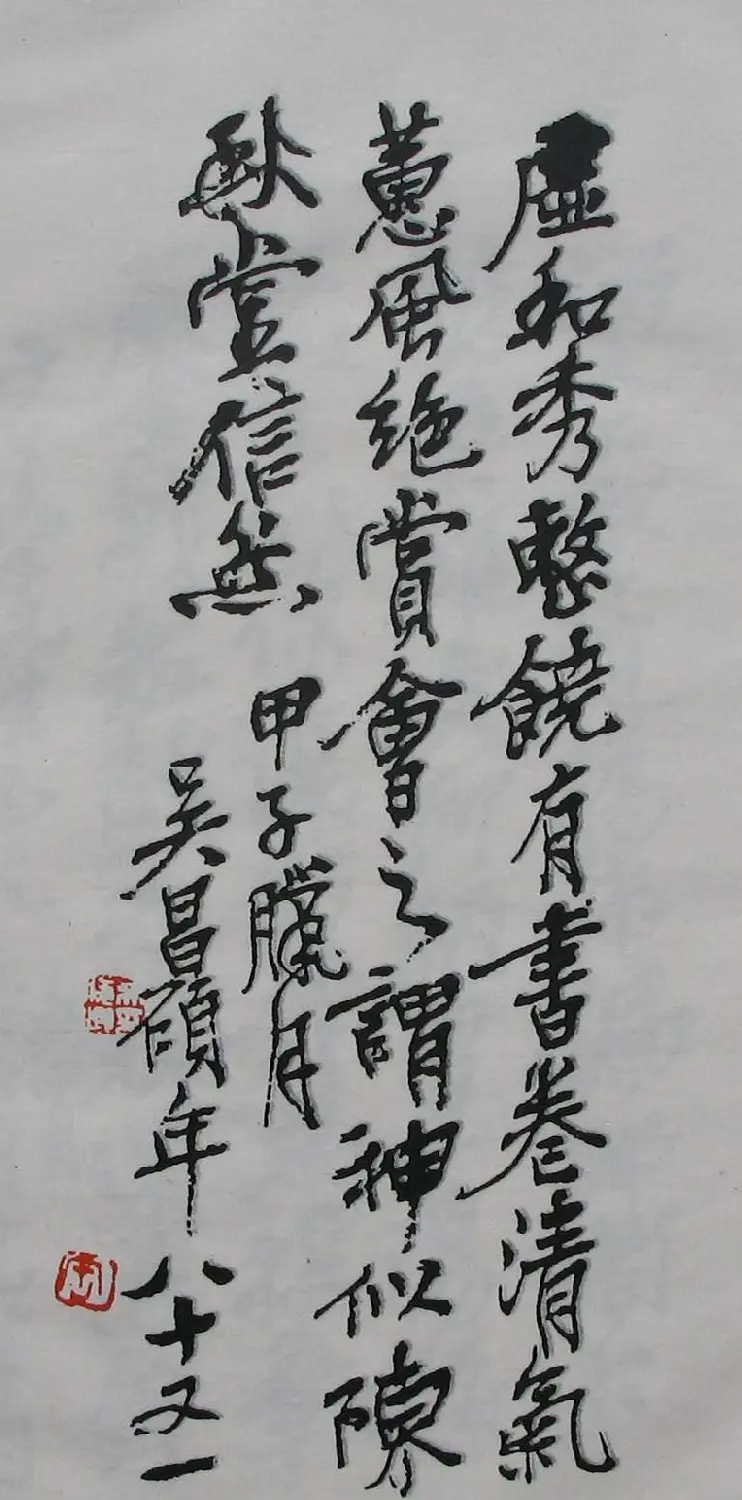 虛和秀整饒有書卷清氣
蕙風絕賞會之謂神似陳
秋堂信然
甲子臘月
吳昌碩年八十又一